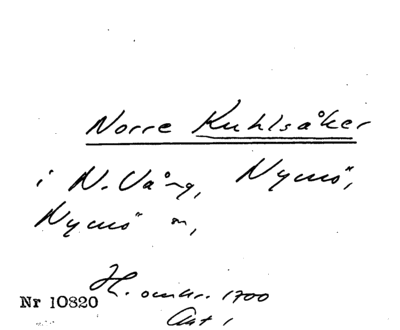 Norre Kuhlsåker
i N. Vång, Nymö,
Nymö sn,
H. omkr. 1700
Nr 10820
Akt 1